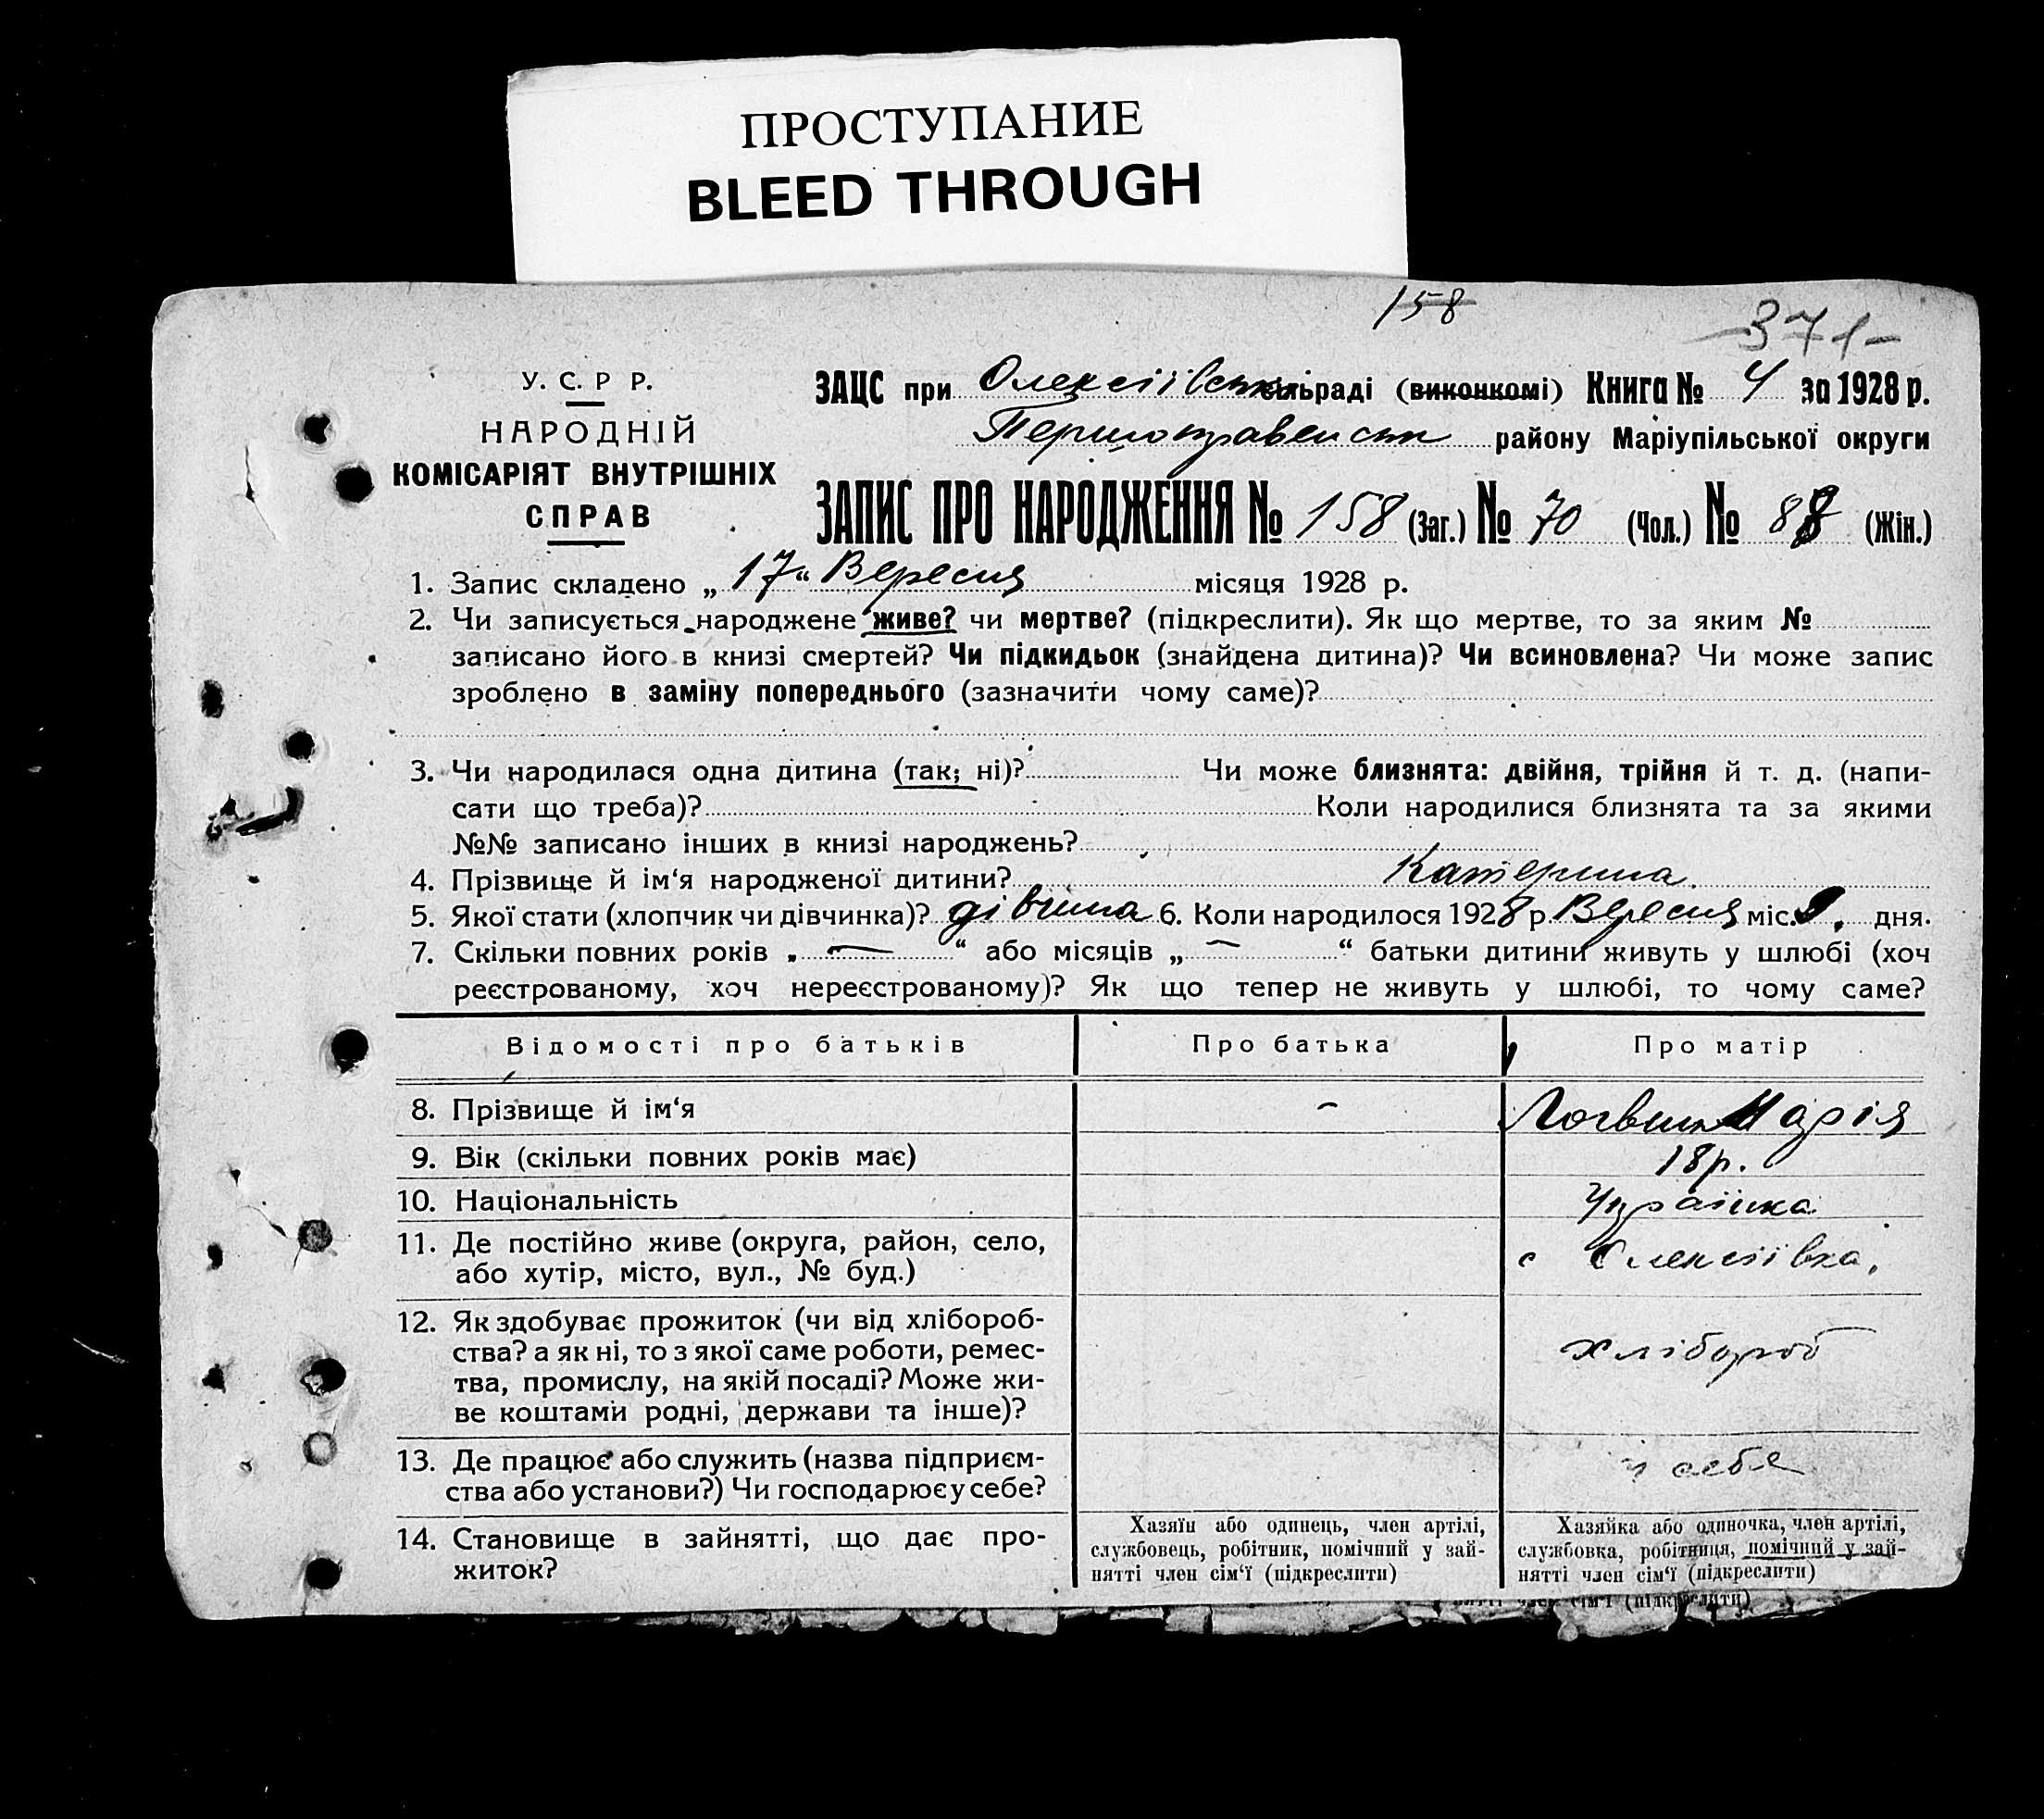 ПРОСТУПАНИЕ
BLEED THROUGH
158
371-
У. С. Р Р.
НАРОДНІЙ
КОМІСАРІЯТ ВНУТРІШНІХ
СПРАВ
ЗАЦС при Олексіївськ сільраді (виконкомі) Книга № 4 за 1928 р.
Першотравенськ району Маріупільської округи
ЗАПИС ПРО НАРОДЖЕННЯ № 158 (Заг.) № 70 (Чол.) № 88 (Жін.)
1. Запис складено „ 17 “ Вересня місяця 1928 р.
2. Чи записується народжене живе? чи мертве? (підкреслити). Як що мертве, то за яким №
записано його в книзі смертей? Чи підкидьок (знайдена дитина)? Чи всиновлена? Чи може запис
зроблено в заміну попереднього (зазначити чому саме)?
3. Чи народилася одна дитина (так; ні)? Чи може близнята: двійня, трійня й т. д. (напи-
сати що треба)? Коли народилися близнята та за якими
№№ записано інших в книзі народжень?
4. Прізвище й ім‘я народженої дитини? Катерина.
5. Якої стати (хлопчик чи дівчинка)? дівчина 6. Коли народилося 1928 р. Вересня міс. 9. дня.
7. Скільки повних років „ — “ або місяців „ — “ батьки дитини живуть у шлюбі (хоч
реєстрованому, хоч нереєстрованому)? Як що тепер не живуть у шлюбі, то чому саме?
Відомості про батьків Про батька Про матір
8. Прізвище й ім‘я - Логвин Марія
9. Вік (скільки повних років має) 18 р.
10. Національність Українка
11. Де постійно живе (округа, район, село, с Олексіївка,
або хутір, місто, вул., № буд.)
12. Як здобуває прожиток (чи від хлібороб-
ства? а як ні, то з якої саме роботи, ремес- хлібороб
тва, промислу, на якій посаді? Може жи-
ве коштами родні, держави та інше)?
13. Де працює або служить (назва підприєм- у себе
ства або установи?) Чи господарює у себе?
14. Становище в зайнятті, що дає про-
житок?
Хазяїн або одинець, член артілі,
службовець, робітник, помічний у зай-
нятті член сім‘ї (підкреслити)
Хазяйка або одиночка, член артілі,
службовка, робітниця, помічний у зай-
нятті член сім‘ї (підкреслити)
нятті член сім‘ї (підкреслити)